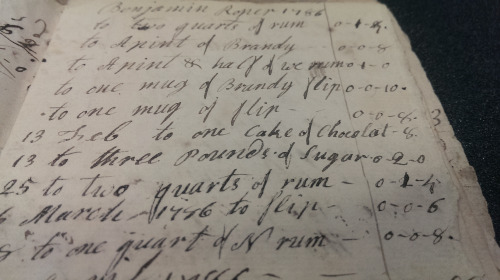 Benjamin Roper 1786
to two quarts of rum 0-1-4
to A pint of Brandy 0-0-8
to A pint & half of we rum 0-1-0
to one mug of Brandy flip 0-0-10
to one mug of flip - 0-0-8
13 Feb to one Cake of Chocolat - 8
13 to three Pounds of Sugar 0-2-0
25 to two quarts of rum - 0-1-4
March 1786 to flip - 0-0-6
to one quart of N rum - 0-0-8